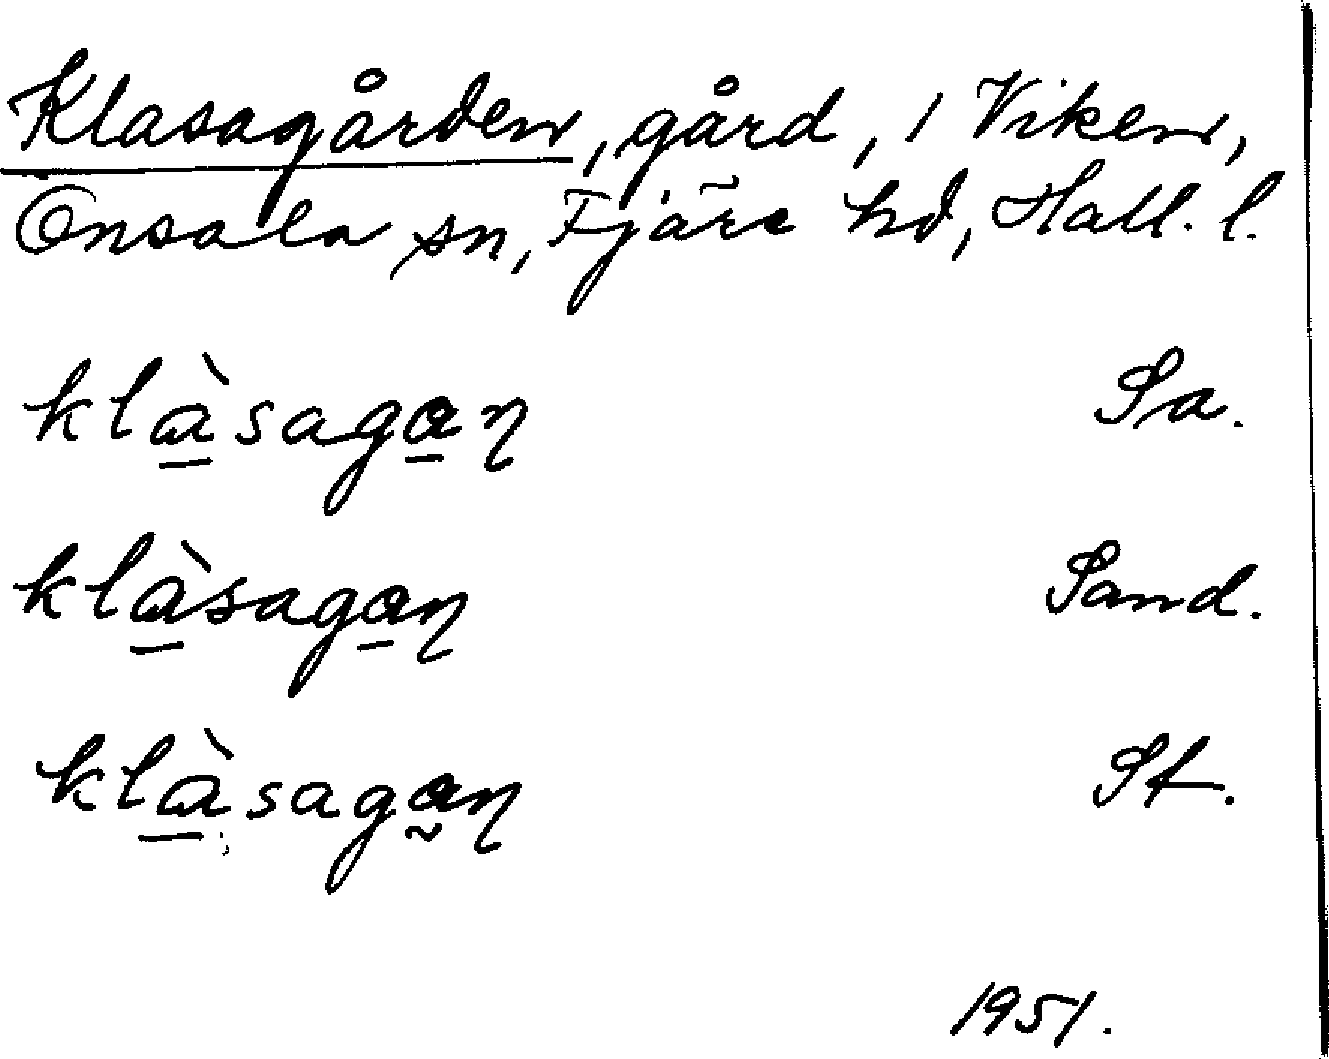 Klasagården, gård, i Viken,
Onsala sn, Fjäre hd, Hall. l.
klɑ̀sagɑɳ Sa.
klɑ̀sagɑɳ Sand.
klɑ̀sagɑɳ St.
1951.